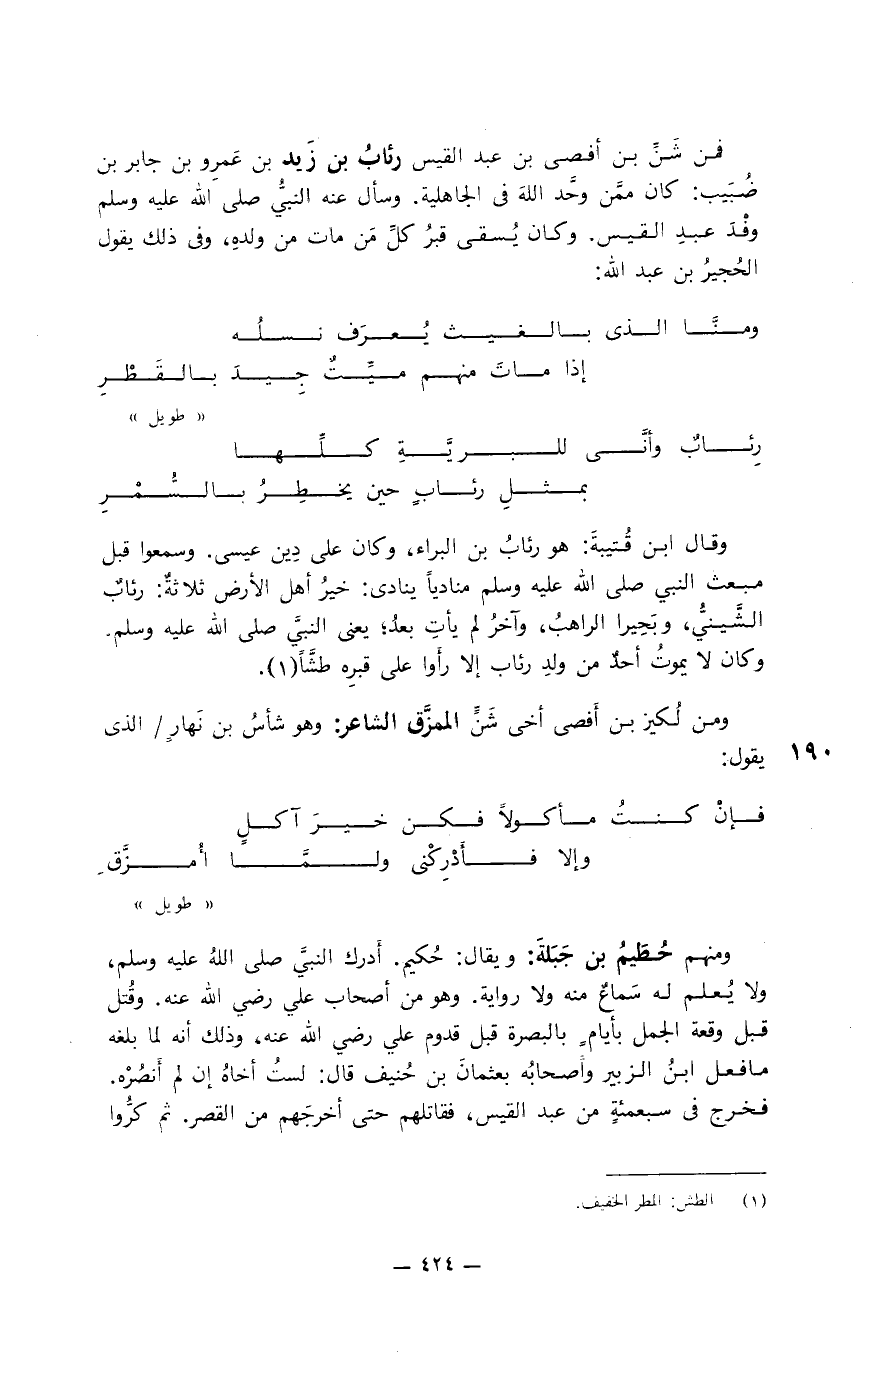 فمن شَنِّ بن أفصى بن عبد القيس رئابُ بن زَيد بن عَمرِو بن جابر بن
ضُبَيب: كان ممَّن وحَّد اللهَ فى الجاهلية. وسأل عنه النبيُّ صلى الله عليه وسلم
وفْدَ عبدِ القيس. وكان يُسقى قبرُ كلِّ مَن مات من ولدهِ، وفى ذلك يقول
الحُجيرُ بن عبد الله:
ومنَّا الذى بالغيث يُعرَف نسلُه
إذا ماتَ منهم ميِّتٌ جِيدَ بالقَطْرِ
« طويل »
رِئابٌ وأنَّى للبريَّةِ كلِّها
بمثلِ رئابٍ حين يخطِرُ بالسُّمْرِ
وقال ابن قُتيبةَ: هو رئابُ بن البراء، وكان على دِين عيسى. وسمعوا قبل
مبعث النبي صلى الله عليه وسلم منادياً ينادى: خيرُ أهل الأرض ثلاثةٌ: رئابٌ
الشَّنِيُّ، وبَحِيرا الراهبُ، وآخرُ لم يأتِ بعدُ؛ يعنى النبيَّ صلى الله عليه وسلم.
وكان لا يموتُ أحدٌ من ولدِ رئاب إلا رأوا على قبرِه طشَّاً(١).
ومن لُكيز بن أفصى أخى شَنٍّ الممزَّق الشاعر: وهو شأسُ بن نَهارٍ / الذى
١٩٠
يقول:
فإنْ كنتُ مأكولاً فكن خيرَ آكلٍ
وإلا فأدْرِكْنى ولمَّا أُمزَّقِ
« طويل »
ومنهم حُطَيمُ بن جَبَلةَ: ويقال: حُكيم. أدرك النبيَّ صلى اللهُ عليه وسلم،
ولا يُعلم له سَماعٌ منه ولا رواية. وهو من أصحاب علي رضي الله عنه. وقُتل
قبل وقعة الجمل بأيامٍ بالبصرة قبل قدوم علي رضي الله عنه، وذلك أنه لما بلغه
مافعل ابنُ الزبير وأصحابُه بعثمانَ بن حُنيف قال: لستُ أخاهُ إن لم أنصُرْه.
فخرج فى سبعمئةٍ من عبد القيس، فقاتلهم حتى أخرجَهم من القصر. ثم كرُّوا
(١) الطش: المطر الخفيف.
— ٤٢٤ —